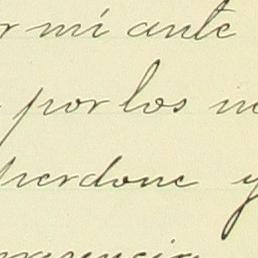 r mi ante
por los
perdone y